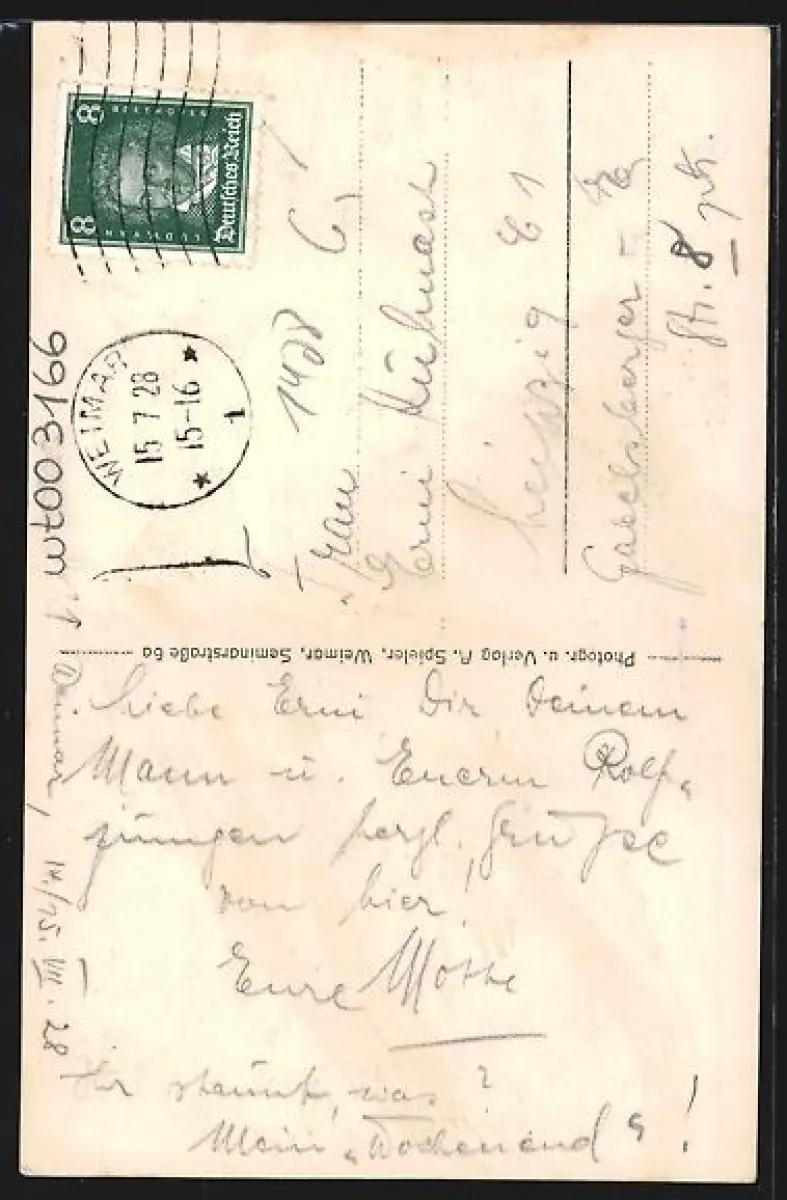 8 8
Deutsches Reich
WEIMAR
15 7 28
15-16
1
wt003166
1428
Frau
Erni
Leipzig C1
Str. 8 ptr.
Photogr. u. Verlag A. Spieler, Weimar, Seminarstraße 6a
Weimar, 14./15. VII. 28
Liebe Erni, Dir, Deinem
Mann u. Euerm Rolf-
jungen herzl. Grüße
von hier!
Eure
Ihr staunt, was?
Mein „Wochenend“!